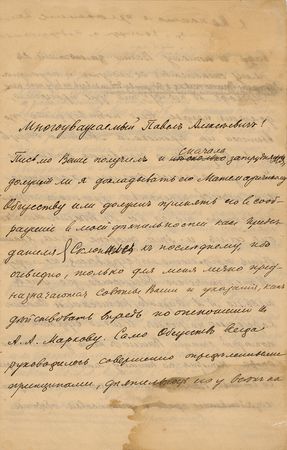 Многоуважаемый Павелъ Алексѣевичъ!
Письмо Ваше получилъ и сначала затруднился,
долженъ ли я докладывать его Математическому
Обществу или долженъ принять его въ сооб-
раженіе въ моей дѣятельности какъ Предсѣ-
дателя. Склонился къ послѣднему, ибо
очевидно, только для меня лично пред-
назначаются совѣты Ваши и указанія, какъ
дѣйствовать впредь по отношенію къ
А. А. Маркову. Само Общество всегда
руководилось совершенно опредѣленными
принципами,